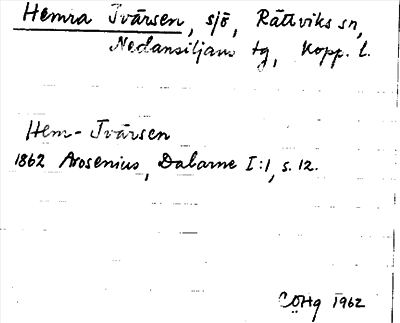 Hemra Tvärsen, sjö, Rättviks sn,
Nedansiljans tg, Kopp. l.
Hem-Tvärsen
1862 Arosenius, Dalarne I:1, s. 12.
CÖHg 1962